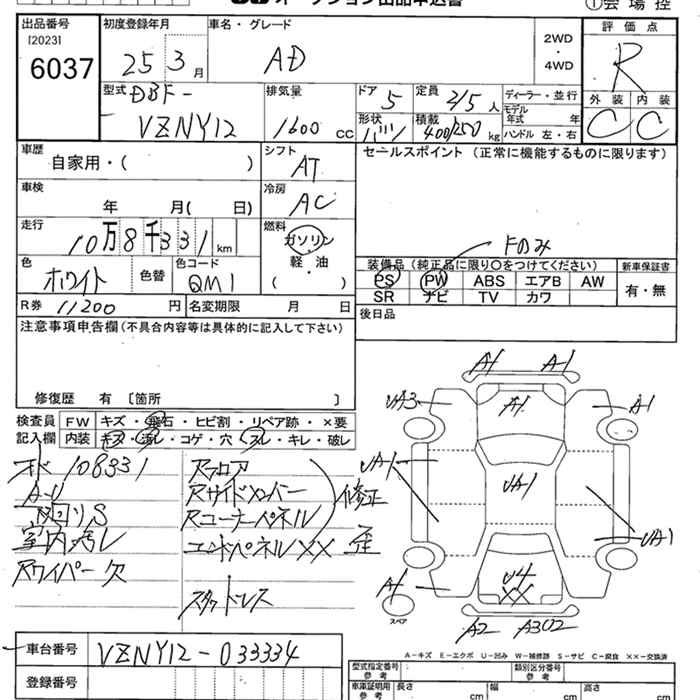 オークション出品申込書
①会場控
出品番号
[2023]
6037
初度登録年月
25 3月
車名・グレード
AD
2WD
・
4WD
評価点
R
外装 内装
C C
型式
DBF-
VZNY12
排気量
1600 cc
ドア 5
定員 2/5 人
ディーラー・並行
モデル年式 年
形状 バン
積載 400/250 kg
ハンドル 左・右
車歴
自家用・( )
シフト
AT
セールスポイント (正常に機能するものに限ります)
車検
年 月( 日)
冷房
AC
走行
10万8千331 km
燃料
ガソリン
軽・油
( )
Fのみ
色
ホワイト
色替
色コード
QM1
装備品(純正品に限り○をつけてください)
新車保証書
PS PW ABS エアB AW
SR ナビ TV カワ
有・無
R券 11200 円
名変期限 月 日
後日品
注意事項申告欄(不具合内容等は具体的に記入して下さい)
修復歴 有 [箇所 ]
検査員
記入欄
FW キズ・飛石・ヒビ割・リペア跡・×要
内装 キズ・汚レ・コゲ・穴・スレ・キレ・破レ
108331
A・U
下回りS
室内汚レ
Rワイパー欠
Rフロア
Rサイドメンバー
Rコーナーパネル
修正
エンドパネルXX 歪
スタッドレス
A1 A-1
UA3 A1 A1
UA1 UA1
UA1
A1 U4
XX
スペア
A2 A302
A-キズ E-エクボ U-凹み W-補修跡 S-サビ C-腐食 XX-交換済
車台番号
VZNY12-033334
登録番号
型式指定番号
参考
類別区分番号
参考
車庫証明用
参考
長さ cm
幅 cm
高さ cm